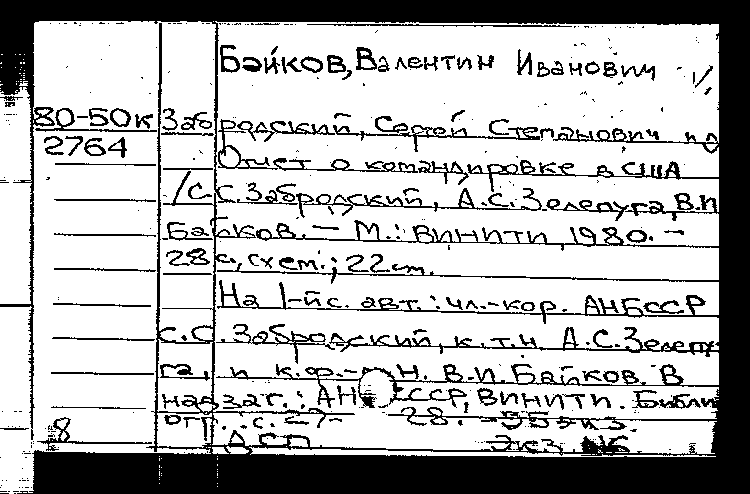 Байков, Валентин Иванович
80-50к Забродский, Сергей Степанович и др
2764 Отчет о командировке в США
/С.С. Забродский, А.С. Зелепуга, В.И.
Байков. — М.: ВИНИТИ, 1980. —
28 с., схем.; 22 см.
На 1-й с. авт.: чл.-кор. АН БССР
С.С. Забродский, к.т.н. А.С. Зелепу-
га, и к.ф.- Н. В.И. Байков. В
надзаг.: АН СССР, ВИНИТИ. Библи
огр.: с. 27-28. - 55 экз.
8 ДСП Экз. №6